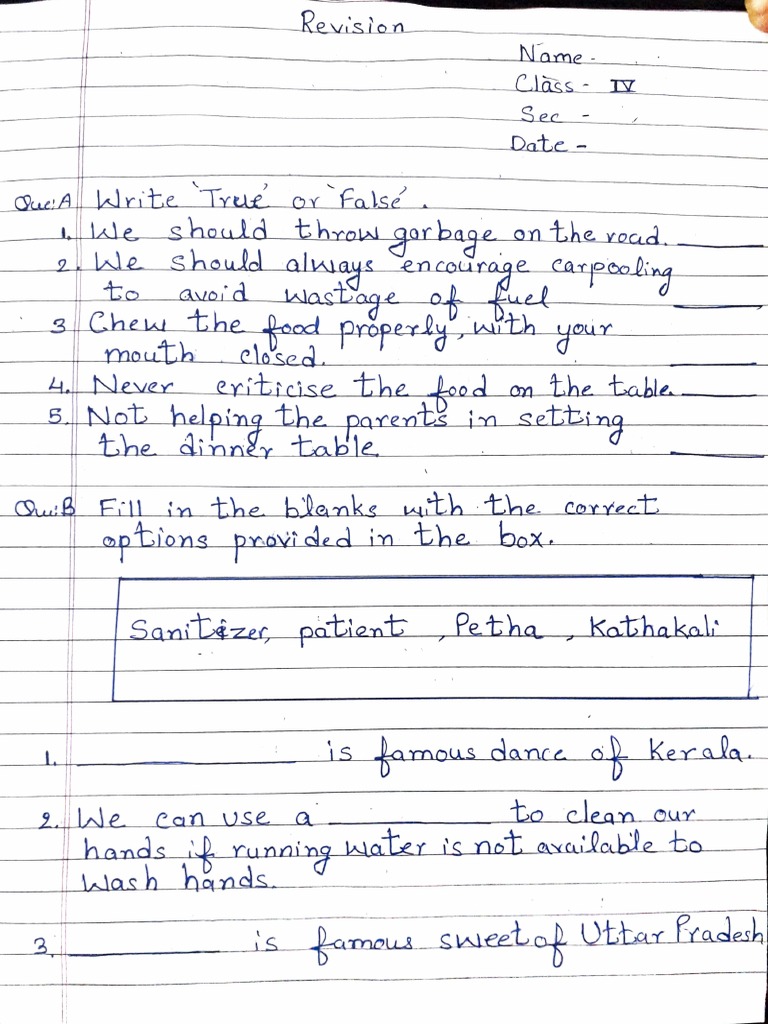 Revision
Name -
Class - IV
Sec -
Date -
Que:A Write 'True' or 'False'.
1. We should throw garbage on the road. ______
2. We should always encourage carpooling
to avoid wastage of fuel ______
3 Chew the food properly, with your
mouth closed. ______
4. Never criticise the food on the table. ______
5. Not helping the parents in setting
the dinner table ______
Que:B Fill in the blanks with the correct
options provided in the box.
Sanitizer, patient , Petha , Kathakali
1. ____________ is famous dance of Kerala.
2. We can use a __________ to clean our
hands if running water is not available to
wash hands.
3. __________ is famous sweet of Uttar Pradesh